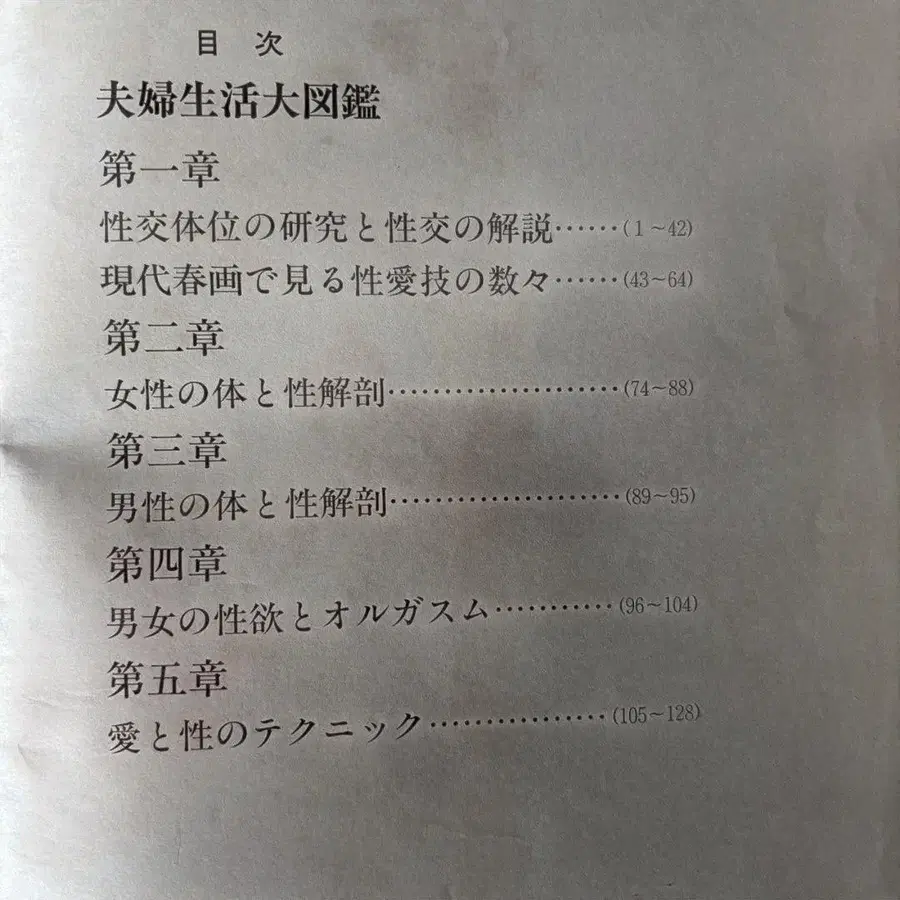 目 次
夫婦生活大図鑑
第一章
性交体位の研究と性交の解説……(1〜42)
現代春画で見る性愛技の数々……(43〜64)
第二章
女性の体と性解剖…………………(74〜88)
第三章
男性の体と性解剖…………………(89〜95)
第四章
男女の性欲とオルガスム…………(96〜104)
第五章
愛と性のテクニック………………(105〜128)